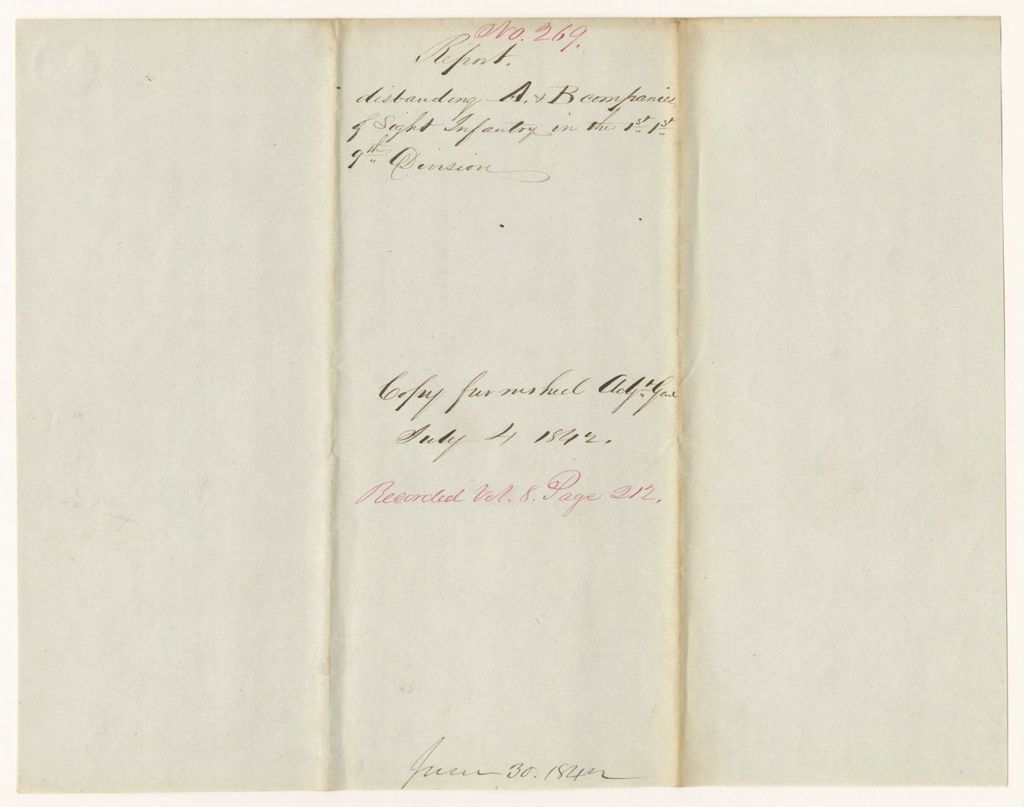 No. 269.
Report.
disbanding A. & B companies
of Light Infantry in the 1st 1st
9th Division
Copy furnished Adjt Gen
July 4 1842.
Recorded Vol. 8. Page 212.
June 30. 1842